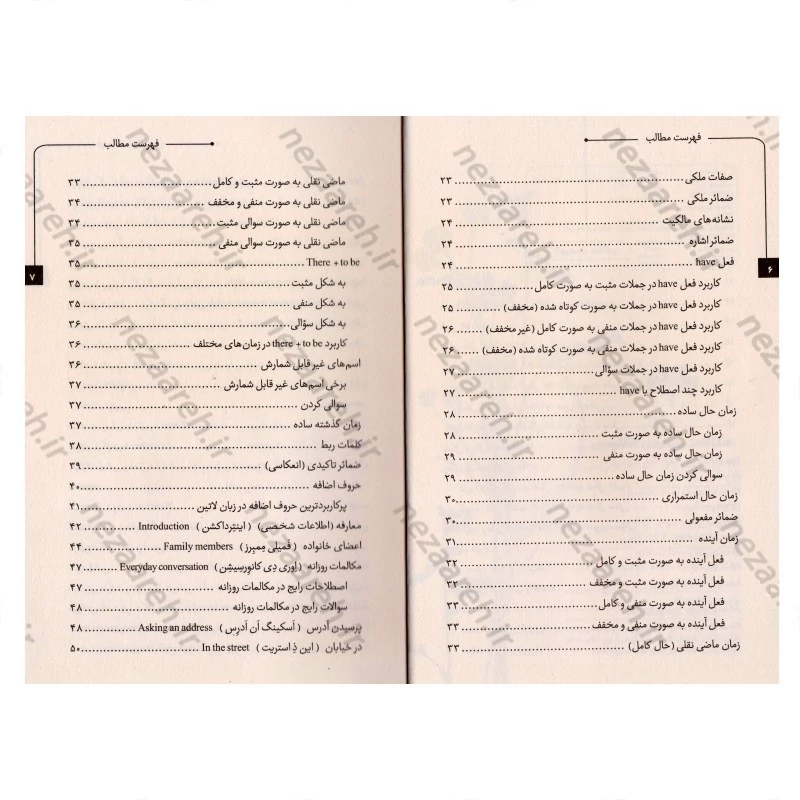 فهرست مطالب
۶
صفات ملکی ................ ۲۳
ضمائر ملکی ................ ۲۳
نشانه‌های مالکیت ................ ۲۴
ضمائر اشاره ................ ۲۴
فعل have ................ ۲۴
کاربرد فعل have در جملات مثبت به صورت کامل ................ ۲۵
کاربرد فعل have در جملات به صورت کوتاه شده (مخفف) ................ ۲۵
کاربرد فعل have در جملات منفی به صورت کامل (غیر مخفف) ...... ۲۶
کاربرد فعل have در جملات منفی به صورت کوتاه شده (مخفف) ...... ۲۶
کاربرد فعل have در جملات سؤالی ................ ۲۷
کاربرد چند اصطلاح با have ................ ۲۷
زمان حال ساده ................ ۲۸
زمان حال ساده به صورت مثبت ................ ۲۸
زمان حال ساده به صورت منفی ................ ۲۹
سوالی کردن زمان حال ساده ................ ۲۹
زمان حال استمراری ................ ۳۰
ضمائر مفعولی ................ ۳۰
زمان آینده ................ ۳۱
فعل آینده به صورت مثبت و کامل ................ ۳۲
فعل آینده به صورت مثبت و مخفف ................ ۳۲
فعل آینده به صورت منفی و کامل ................ ۳۳
فعل آینده به صورت منفی و مخفف ................ ۳۳
زمان ماضی نقلی (حال کامل) ................ ۳۳
فهرست مطالب
۷
ماضی نقلی به صورت مثبت و کامل ................ ۳۳
ماضی نقلی به صورت منفی و مخفف ................ ۳۴
ماضی نقلی به صورت سوالی مثبت ................ ۳۴
ماضی نقلی به صورت سوالی منفی ................ ۳۵
There + to be ................ ۳۵
به شکل مثبت ................ ۳۵
به شکل منفی ................ ۳۵
به شکل سؤالی ................ ۳۶
کاربرد there + to be در زمان‌های مختلف ................ ۳۶
اسم‌های غیر قابل شمارش ................ ۳۶
برخی اسم‌های غیر قابل شمارش ................ ۳۷
سوالی کردن ................ ۳۷
زمان گذشته ساده ................ ۳۷
کلمات ربط ................ ۳۸
ضمائر تاکیدی (انعکاسی) ................ ۳۹
حروف اضافه ................ ۴۰
پرکاربردترین حروف اضافه در زبان لاتین ................ ۴۱
معارفه (اطلاعات شخصی) ( اینترداکشن ) Introduction .......... ۴۲
اعضای خانواده ( فَمیلی مِمبِرز ) Family members ................ ۴۴
مکالمات روزانه ( اِوِری دِی کانوِرسِیشِن ) Everyday conversation ........ ۴۷
اصطلاحات رایج در مکالمات روزانه ................ ۴۷
سوالات رایج در مکالمات روزانه ................ ۴۸
پرسیدن آدرس ( آسکینگ اَن آدرِس ) Asking an address ........ ۴۸
در خیابان ( این ذِ استریت ) In the street ................ ۵۰
nezaareh.ir